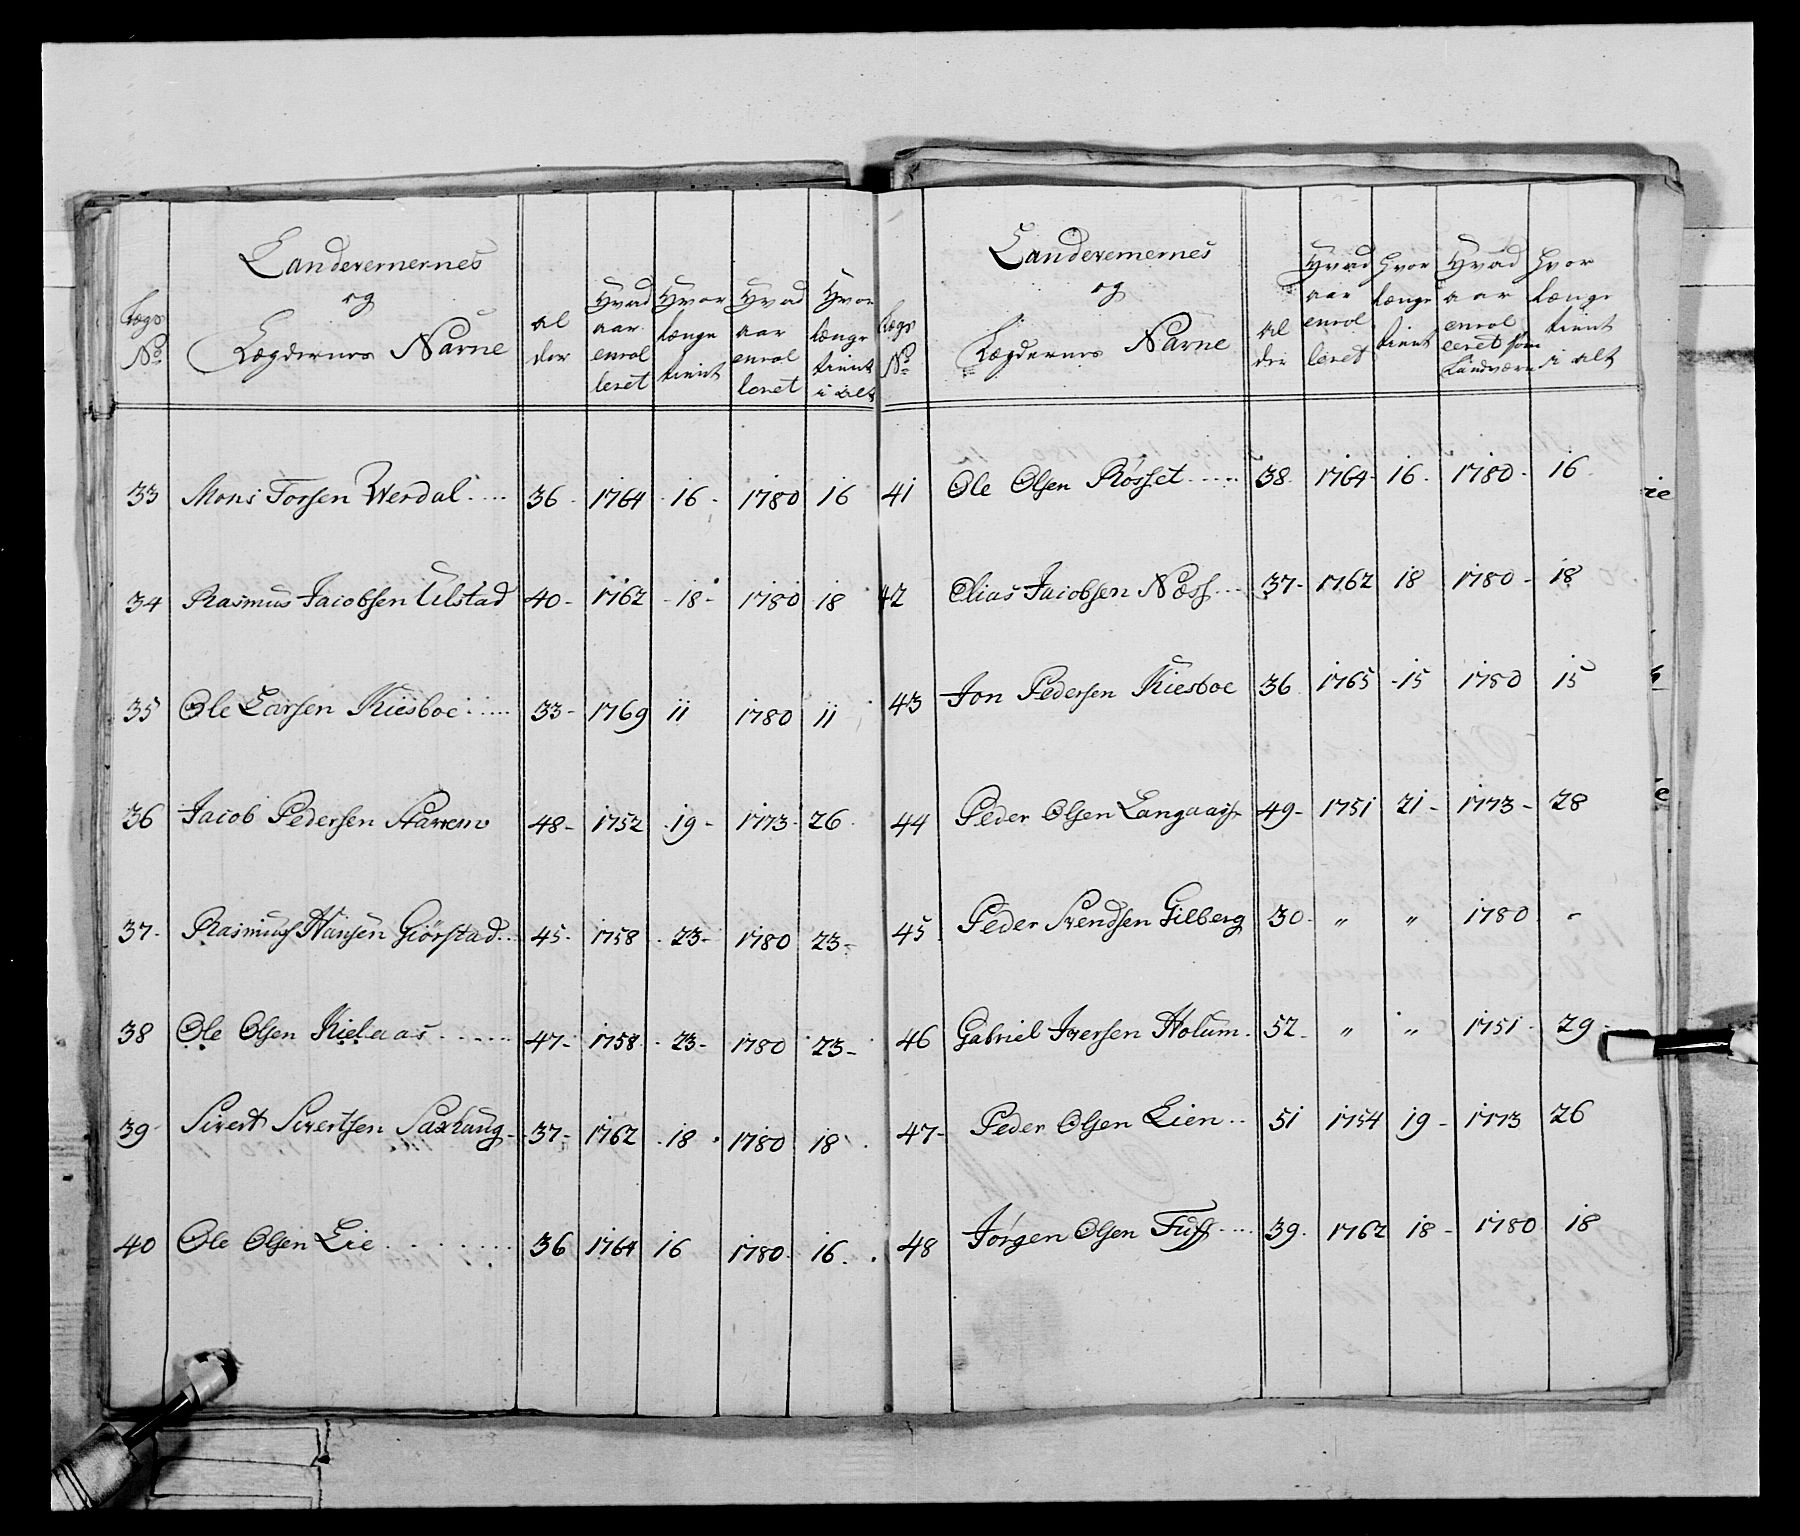 Landevernernes
og
Lægdernes Navne
Lægs
No
al
der
Hvad
aar
enrol
leret
Hvor
længe
tient
Hvad
aar
enrol
leret
Hvor
længe
tient
i alt
33 Mons Torsen Werdal 36 1764 16 1780 16
34 Rasmus Jacobsen Ulstad 40 1762 18 1780 18
35 Ole Larsen Kiesboe 33 1769 11 1780 11
36 Jacob Pedersen Starrem 48 1752 19 1773 26
37 Rasmus Hansen Giörstad 45 1758 23 1780 23
38 Ole Olsen Kielaas 47 1758 23 1780 23
39 Sivert Sivertsen Saxhaug 37 1762 18 1780 18
40 Ole Olsen Lie 36 1764 16 1780 16
Landevernernes
og
Lægdernes Navne
Lægs
No
al
der
Hvad
aar
enrol
leret
Hvor
længe
tient
Hvad
aar
enrol
leret som
Landværn
Hvor
længe
tient
i alt
41 Ole Olsen Røsset 38 1764 16 1780 16
42 Elias Jacobsen Næss 37 1762 18 1780 18
43 Jon Pedersen Kiesboe 36 1765 15 1780 15
44 Peder Olsen Langaas 49 1751 21 1773 28
45 Peder Svendsen Gilberg 30 " " 1780 "
46 Gabriel Iversen Holum 52 " " 1751 29
47 Peder Olsen Lien 51 1754 19 1773 26
48 Jørgen Olsen Tuff 39 1762 18 1780 18